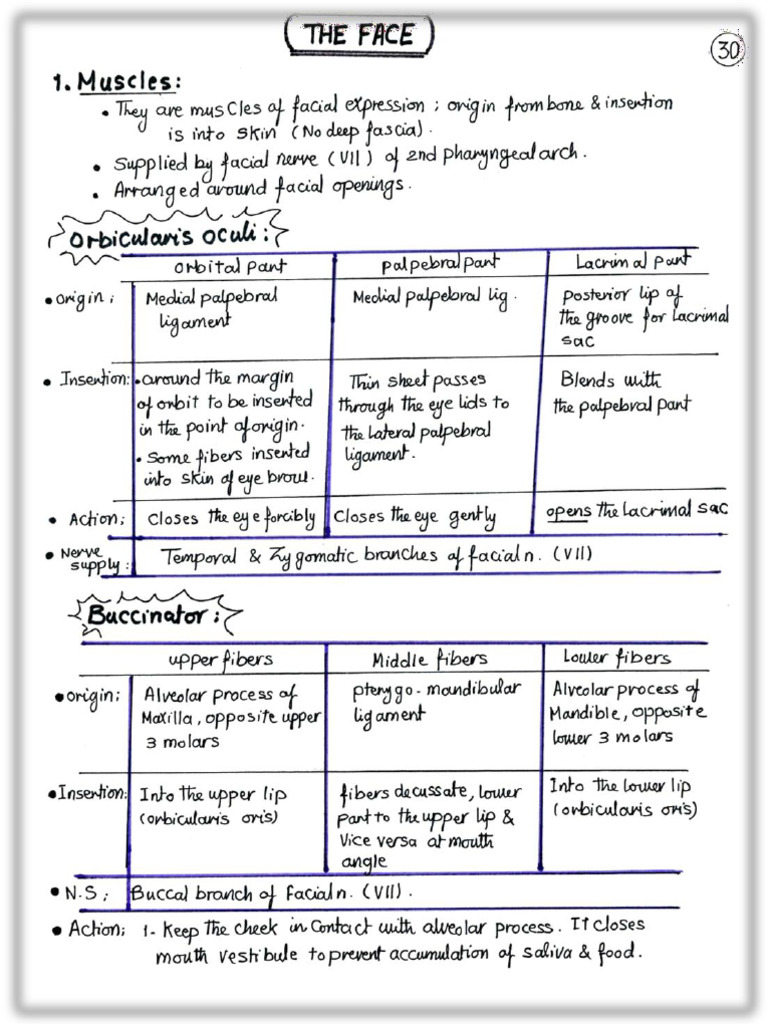 THE FACE
30
1. Muscles:
• They are muscles of facial expression ; origin from bone & insention
is into skin (No deep fascia).
• Supplied by facial nerve (VII) of 2nd pharyngeal arch.
• Arranged around facial openings.
Orbicularis oculi:
orbital part palpebral part Lacrimal part
• origin; Medial palpebral Medial palpebral lig. Posterior lip of
ligament the groove for lacrimal
sac
• Insention: • around the margin Thin sheet passes Blends with
of orbit to be inserted through the eye lids to the palpebral part
in the point of origin. the lateral palpebral
• Some fibers inserted ligament.
into skin of eye brow.
• Action; Closes the eye forcibly Closes the eye gently opens the lacrimal sac
• Nerve supply: Temporal & Zygomatic branches of facial n. (VII)
Buccinator:
upper fibers Middle fibers Lower fibers
• origin; Alveolar process of pterygo-mandibular Alveolar process of
Maxilla, opposite upper ligament Mandible, opposite
3 molars lower 3 molars
• Insention: Into the upper lip fibers decussate, lower Into the lower lip
(orbicularis oris) part to the upper lip & (orbicularis oris)
Vice versa at mouth
angle
• N.S; Buccal branch of facial n. (VII).
• Action; 1- Keep the cheek in contact with alveolar process. It closes
mouth vestibule to prevent accumulation of saliva & food.